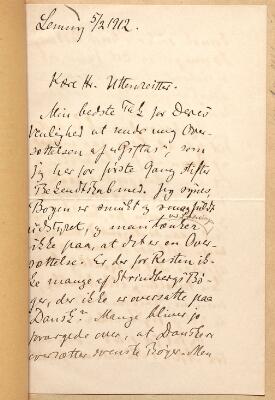 Lemvig 5/2 1912.
Kære Hr. Uttenreitter.
Min bedste Tak for Deres
Venlighed at sende mig Over-
sættelsen af "Giftas", som
jeg her for første Gang stifter
Bekendtskab med. Jeg synes
Bogen er smukt og
udstyret, og man tænker
ikke paa, at det er en Over-
sættelse. Er der for Resten ik-
ke mange af Strindbergs Bø-
ger, der ikke er oversatte paa
Dansk? Mange bliver jo
forargede over, at Danskere
oversætter svenske Bøger. Men